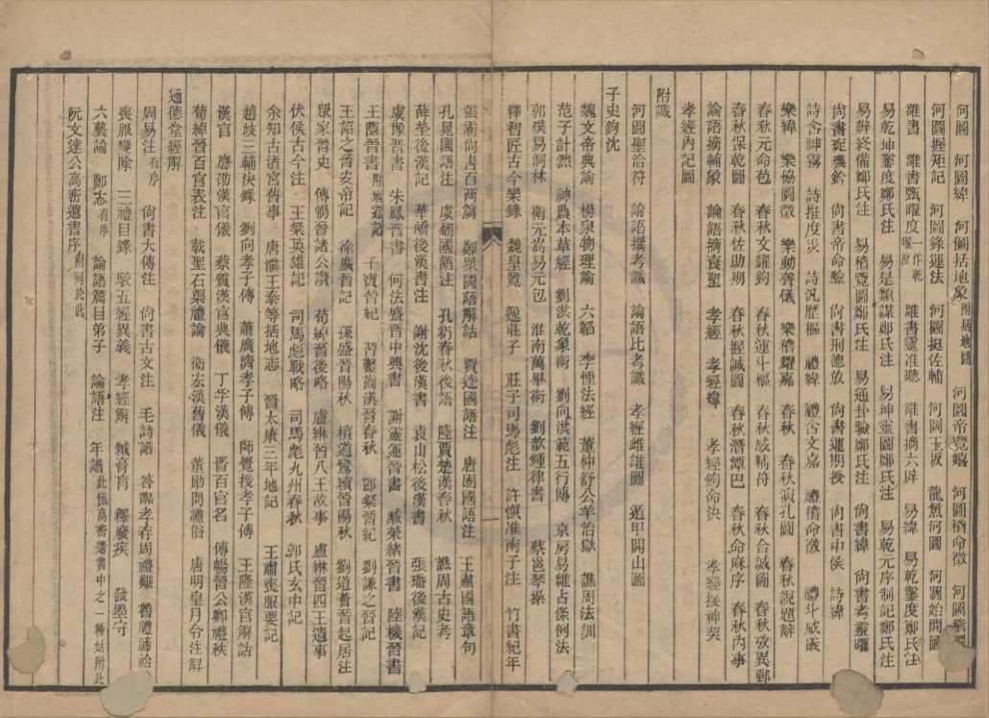 河圖 河圖緯 河圖括地象 附括地圖 河圖帝覽嬉 河圖稽命徵
河圖握矩記 河圖錄運法 河圖挺佐輔 河圖玉版 龍魚河圖 河圖始開圖
雒書 雒書甄曜度 雒書靈准聽 雒書摘六辟 易緯 易乾鑿度鄭氏注
易乾坤鑿度鄭氏注 易是類謀鄭氏注 易坤靈圖鄭氏注 易乾元序制記鄭氏注
易辨終備鄭氏注 易稽覽圖鄭氏注 易通卦驗鄭氏注 尙書緯 尙書考靈曜
尙書琁機鈐 尙書帝命驗 尙書刑德放 尙書運期授 尙書中候 詩緯
詩含神霧 詩推度災 詩汎歷樞 禮緯 禮含文嘉 禮稽命徵 禮斗威儀
樂緯 樂協圖徵 樂動聲儀 樂稽耀嘉 春秋 春秋演孔圖 春秋說題辭
春秋元命苞 春秋文耀鉤 春秋運斗樞 春秋感精符 春秋合誠圖 春秋攷異郵
春秋保乾圖 春秋佐助期 春秋握誠圖 春秋潛潭巴 春秋命厤序 春秋內事
論語摘輔象 論語摘衰聖 孝經 孝經緯 孝經鉤命決 孝經援神契
孝經內記圖
附讖
河圖聖洽符 論語撰考讖 論語比考讖 孝經雌雄圖 遁甲開山圖
子史鉤沈
魏文帝典論 楊泉物理論 六韜 李悝法經 董仲舒公羊治獄 譙周法訓
范子計然 神農本草經 劉洪乾象術 劉向洪範五行傳 京房易雜占條例法
郭璞易洞林 衛元嵩易元包 淮南萬畢術 劉歆鍾律書 蔡邕琴操
釋智匠古今樂錄 魏皇覽 逸莊子 莊子司馬彪注 許愼淮南子注 竹書紀年
張霸尙書百兩篇 鄭眾國語解詁 賈逵國語注 唐固國語注 王肅國語章句
孔晁國語注 虞翻國語注 孔衍春秋後語 陸賈楚漢春秋 譙周古史考
薛瑩後漢記 華嶠後漢書注 謝沈後漢書 袁山松後漢書 張璠後漢記
虞預晉書 朱鳳晉書 何法盛晉中興書 謝靈運晉書 臧榮緒晉書 陸機晉書
王隱晉書 附地道記 干寶晉紀 習鑿齒漢晉春秋 鄧粲晉紀 劉謙之晉記
王韶之晉安帝記 徐廣晉記 孫盛晉陽秋 檀道鸞續晉陽秋 劉道薈晉起居注
眾家晉史 傅暢晉諸公讚 荀綽晉後略 盧綝晉八王故事 盧綝晉四王遺事
伏侯古今注 王粲英雄記 司馬彪戰略 司馬彪九州春秋 郭氏玄中記
余知古渚宮舊事 唐濮王泰等括地志 晉太康三年地記 王肅喪服要記
趙岐三輔決錄 劉向孝子傳 蕭廣濟孝子傳 師覺授孝子傳 王隆漢官解詁
漢官 應劭漢官儀 蔡質漢官典儀 丁孚漢儀 晉百官名 傅暢晉公卿禮秩
荀綽晉百官表注 戴聖石渠禮論 衛宏漢舊儀 董勛問禮俗 唐明皇月令注解
通德堂經解
周易注 有序 尙書大傳注 尙書古文注 毛詩譜 答臨孝存周禮難 魯禮禘祫
喪服變除 三禮目錄 駮五經異義 孝經解 箴膏肓 釋廢疾 發墨守
六藝論 鄭志 有序 論語篇目弟子 論語注 年譜 此係高密遺書中之一種姑附此
阮文達公高密遺書序 附列於此